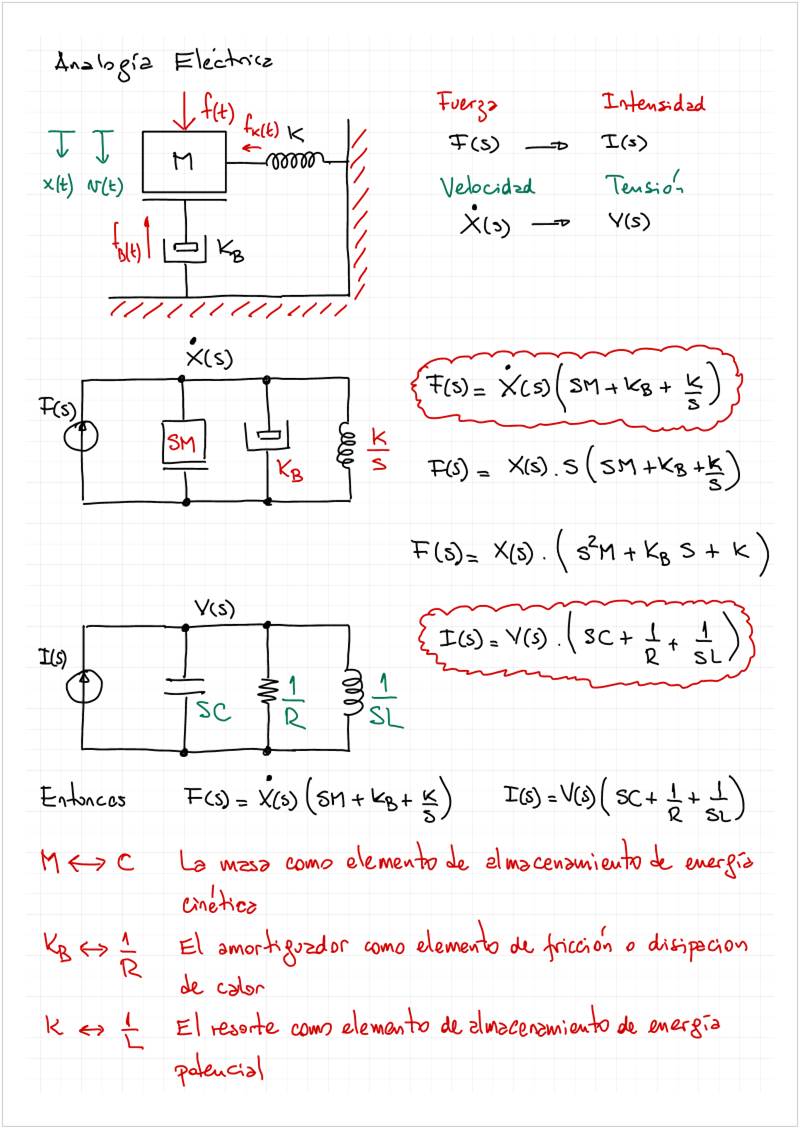 Analogía Eléctrica
f(t)
fk(t)
K
M
x(t) v(t)
fB(t)
KB
Fuerza Intensidad
F(s) → I(s)
Velocidad Tensión
Ẋ(s) → V(s)
Ẋ(s)
F(s)
SM
KB
K/S
F(s) = Ẋ(s) (SM + KB + K/S)
F(s) = X(s) . S (SM + KB + K/S)
F(s) = X(s) . (S²M + KB S + K)
V(s)
I(s)
SC
1/R
1/SL
I(s) = V(s) . (SC + 1/R + 1/SL)
Entonces F(s) = Ẋ(s) (SM + KB + K/S) I(s) = V(s) (SC + 1/R + 1/SL)
M ↔ C La masa como elemento de almacenamiento de energía
cinética
KB ↔ 1/R El amortiguador como elemento de fricción o disipacion
de calor
K ↔ 1/L El resorte como elemento de almacenamiento de energía
potencial